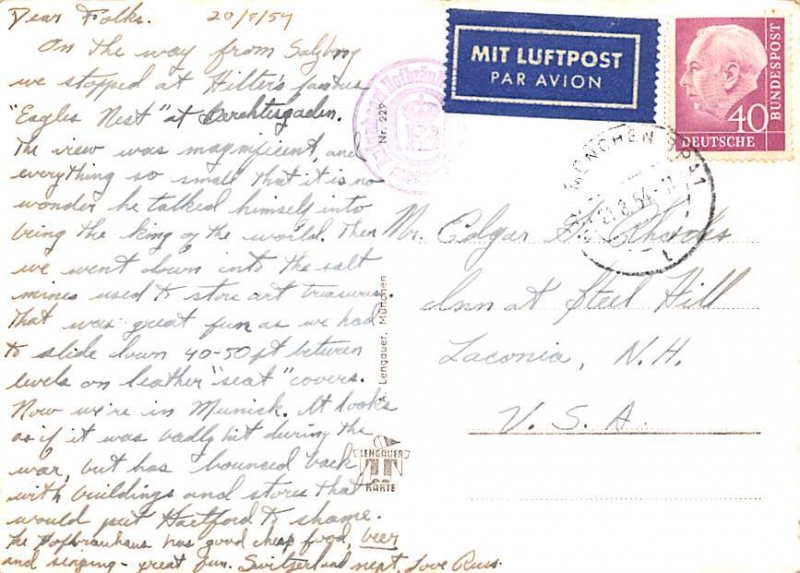 Dear Folks. 20/8/54
On the way from Salzburg
we stopped at Hitler's famous
"Eagles Nest" at Berchtesgaden.
The view was magnificent, and
everything so small that it is no
wonder he talked himself into
being the king of the world. Then
we went down into the salt
mines used to store art treasures.
That was great fun as we had
to slide down 40-50 ft between
levels on leather "seat" covers.
Now we're in Munich. It looks
as if it was badly hit during the
war, but has bounced back
with buildings and stores that
would put Hartford to shame.
The Hofbrauhaus has good cheap food, beer
and singing - great fun. Switzerland next, Love Russ
Nr. 229
A. Lengauer, München
LENGAUER
KARTE
MIT LUFTPOST
PAR AVION
40
DEUTSCHE
BUNDESPOST
MÜNCHEN
21.8.54
Mr. Edgar H.
Inn at Steel Hill
Laconia, N.H.
U.S.A.